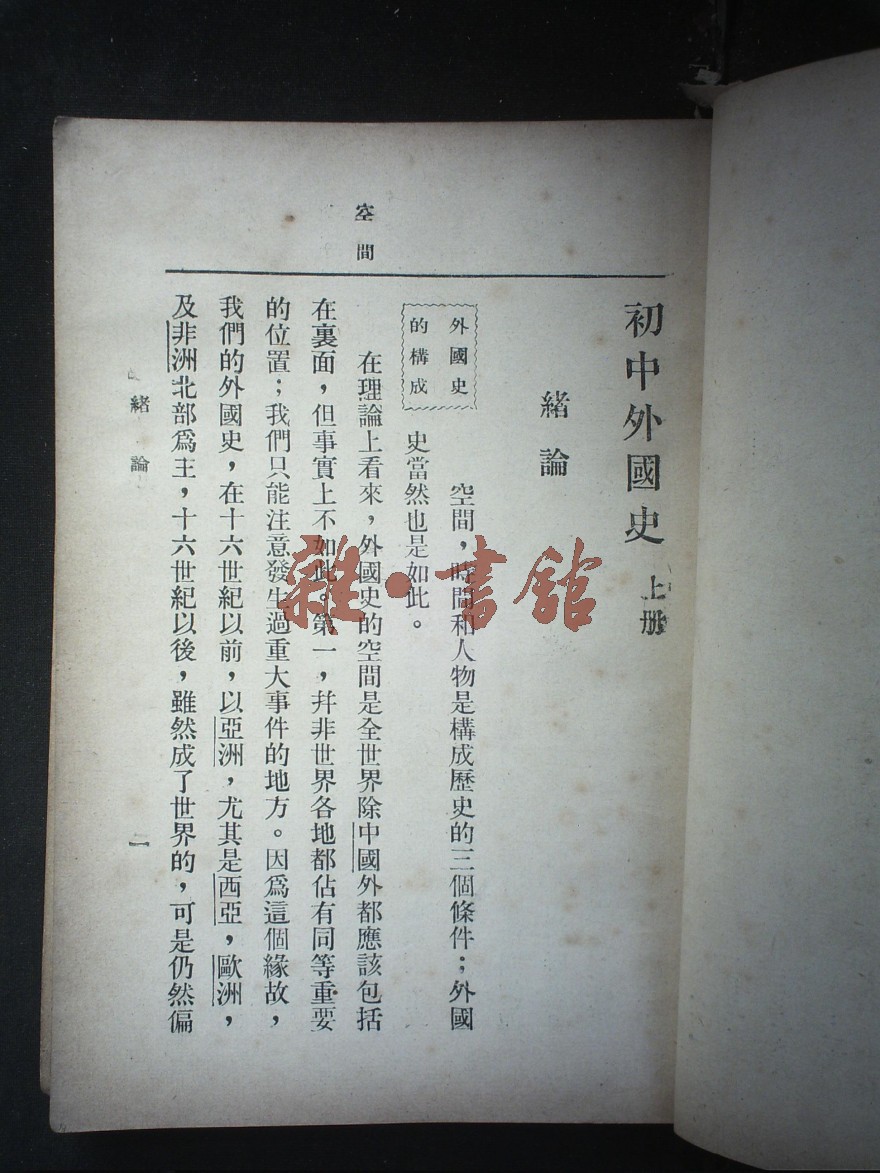 初中外國史 上册
緒論
外國史
的構成
空間，時間和人物是構成歷史的三個條件；外國
史當然也是如此。
空間
在理論上看來，外國史的空間是全世界除中國外都應該包括
在裏面，但事實上不如此。第一，幷非世界各地都佔有同等重要
的位置；我們只能注意發生過重大事件的地方。因爲這個緣故，
我們的外國史，在十六世紀以前，以亞洲，尤其是西亞，歐洲，
及非洲北部爲主，十六世紀以後，雖然成了世界的，可是仍然偏
緒論
一
雜·書館